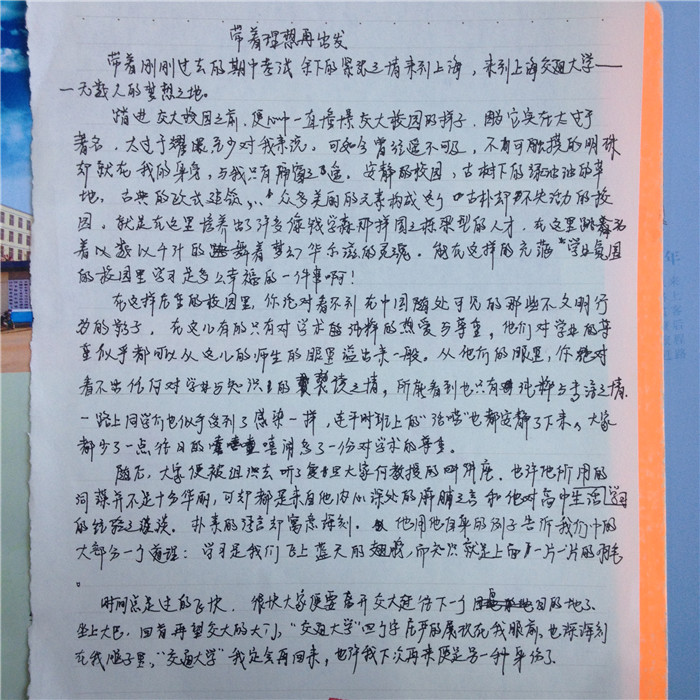 带着理想再出发
带着刚刚过去的期中考试余下的紧张之情来到上海，来到上海交通大学——
一无数人的梦想之地。
踏进交大校园之前，便心中一直憧憬交大校园的样子，因它实在太过于
著名，太过于耀眼至少对我来说。可如今曾经遥不可及，不可触摸的明珠
却就在我的身旁，与我只有隔窗之遥。安静的校园，古树下的绿油油的草
地，古典的欧式建筑，... 众多美丽的元素构成这个古朴却不失活力的校
园。就是在这里培养出了许多像钱学森那样国之栋梁型的人才，在这里跳着
着以数以千计的舞着梦幻华尔兹的灵魂。能在这样的充满学业氛围
的校园里学习是多么幸福的一件事啊！
在这样庄重的校园里，你绝对看不到在中国随处可见的那些不文明行
为的影子。在这儿有的只有对学术的纯粹的热爱与尊重，他们对学业的尊
重似乎都可以从这儿的师生的眼里溢出来一般。从他们的眼里，你绝对
看不出任何对学业与知识的亵渎之情，所能看到也只有纯粹与专注之情，
一路上同学们也似乎受到了感染一样，连平时班上的“活宝”也都安静了下来，大家
都少了一点往日的嘻闹多了一份对学术的尊重。
随后，大家便被组织去听了复旦大学何教授的讲座。也许他所用的
词藻并不是十分华丽，可却都是来自他内心深处的肺腑之言和他对高中生活学习
的经验之谈。朴素的语言却寓意深刻。他用他自身的例子告诉我们中的
大部分一个道理：学习是我们飞上蓝天的翅膀，而知识就是上面一片一片的羽毛
。
时间总是过的飞快，很快大家便要离开交大赶往下一个目的地了。
坐上大巴，回首再望交大的大门，“交通大学”四个字庄严的展现在我眼前，也深深刻
在我脑子里，“交通大学”我定会再回来，也许我下次再来便是另一种身份了。